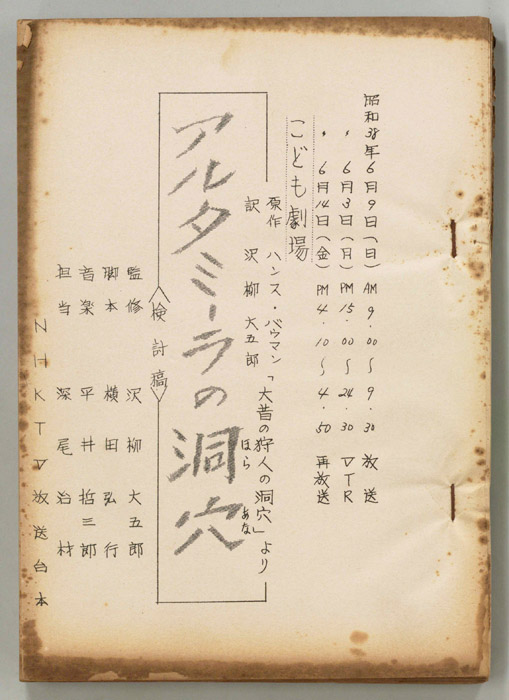 昭和38年6月9日(日)AM9.00〜9.30放送
〃6月3日(月)PM15.00〜24.30VTR
〃6月14日(金)PM4.10〜4.50再放送
こども劇場
原作 ハンス・バウマン「大昔の狩人の洞穴」より
訳 沢柳大五郎
ほら あな
アルタミーラの洞穴
検討稿
監修 沢柳大五郎
脚本 横田弘行
音楽 平井哲三郎
担当 深尾治材
NHKTV放送台本